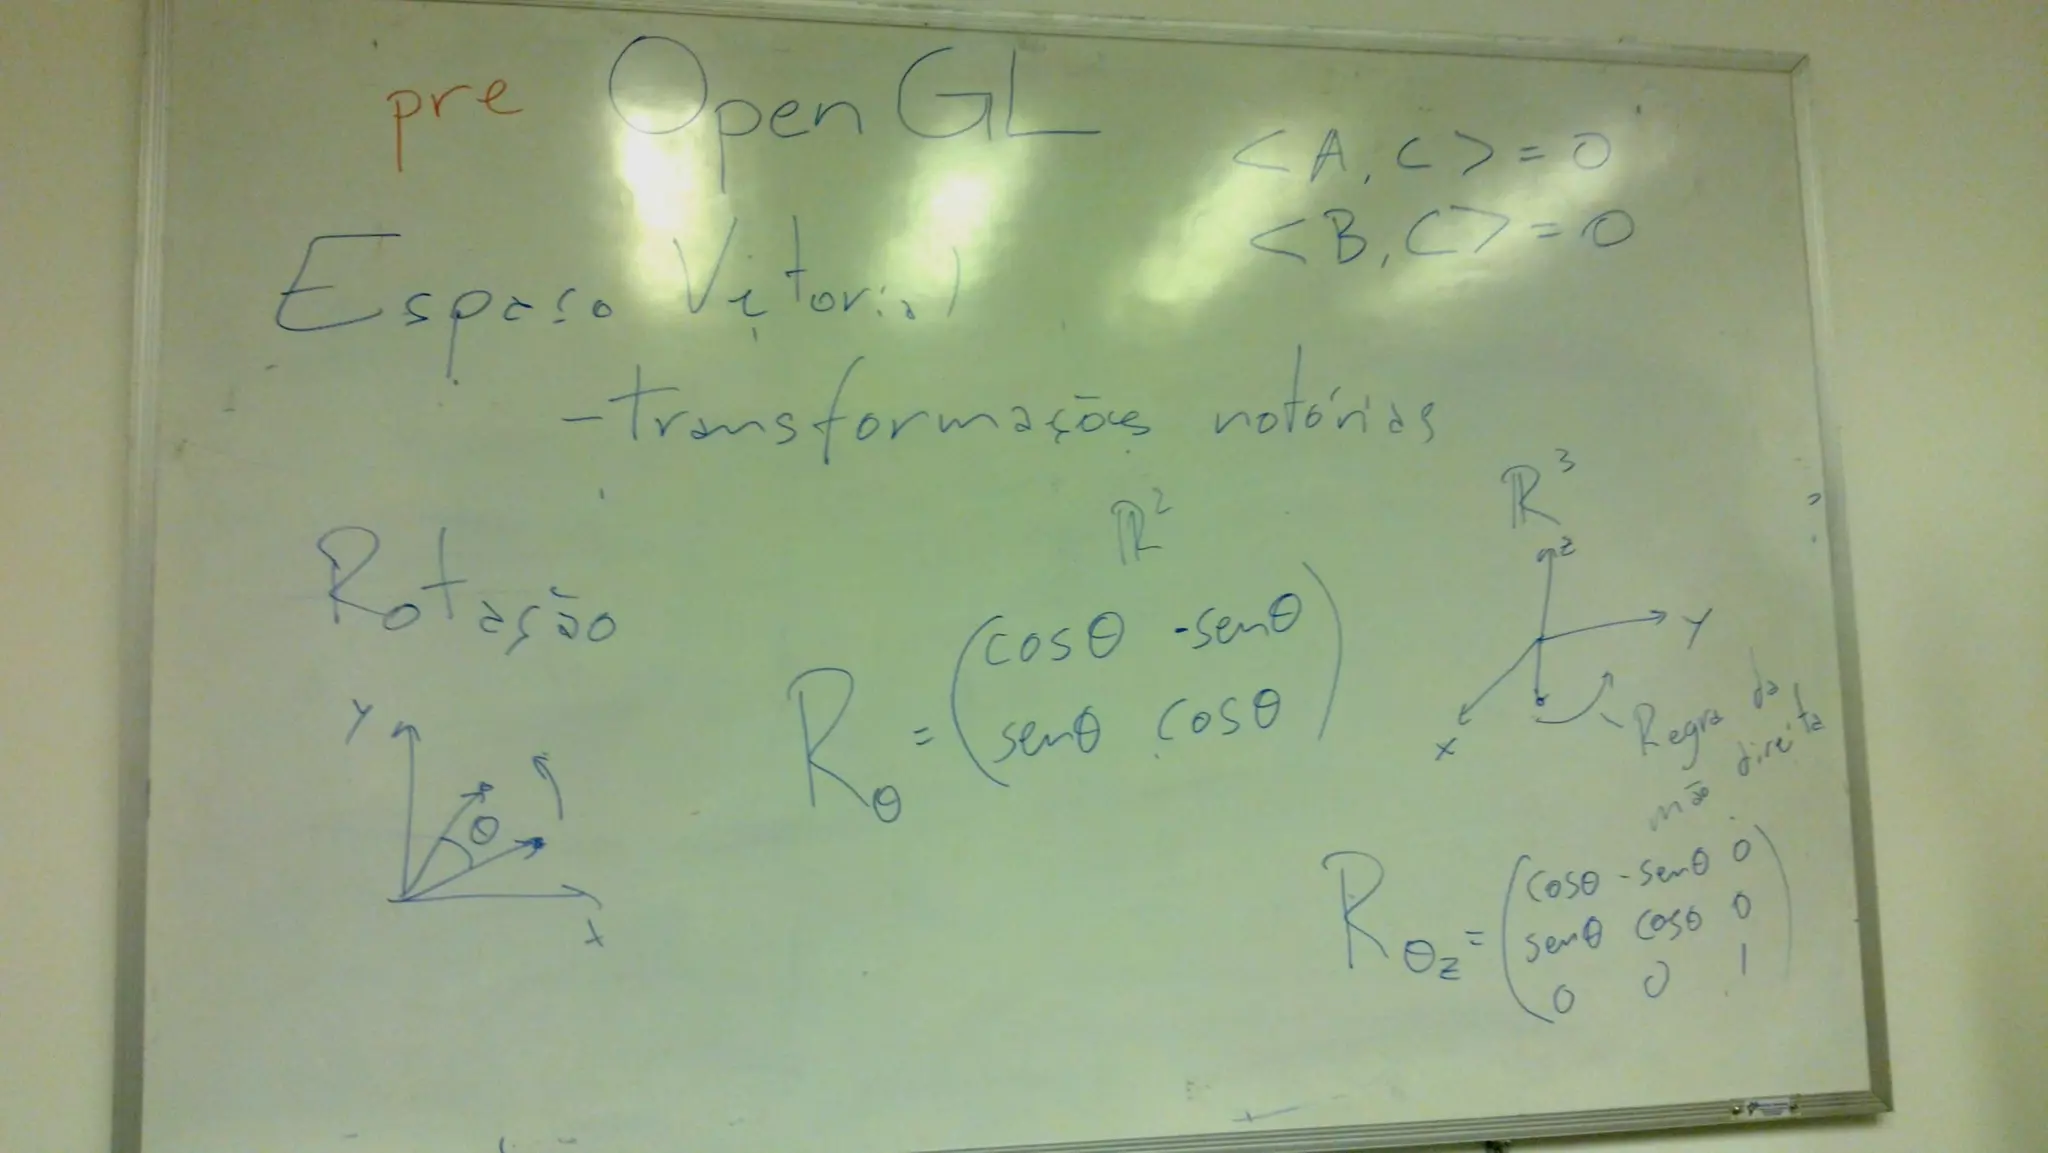 pre OpenGL
<A, C> = 0
<B, C> = 0
Espaço Vetorial
- transformações notórias
Rotação
Y
θ
X
R²
Rθ = (cosθ -senθ
senθ cosθ)
R³
z
Y
X
Regra da
mão direita
Rθz = (cosθ -senθ 0
senθ cosθ 0
0 0 1)